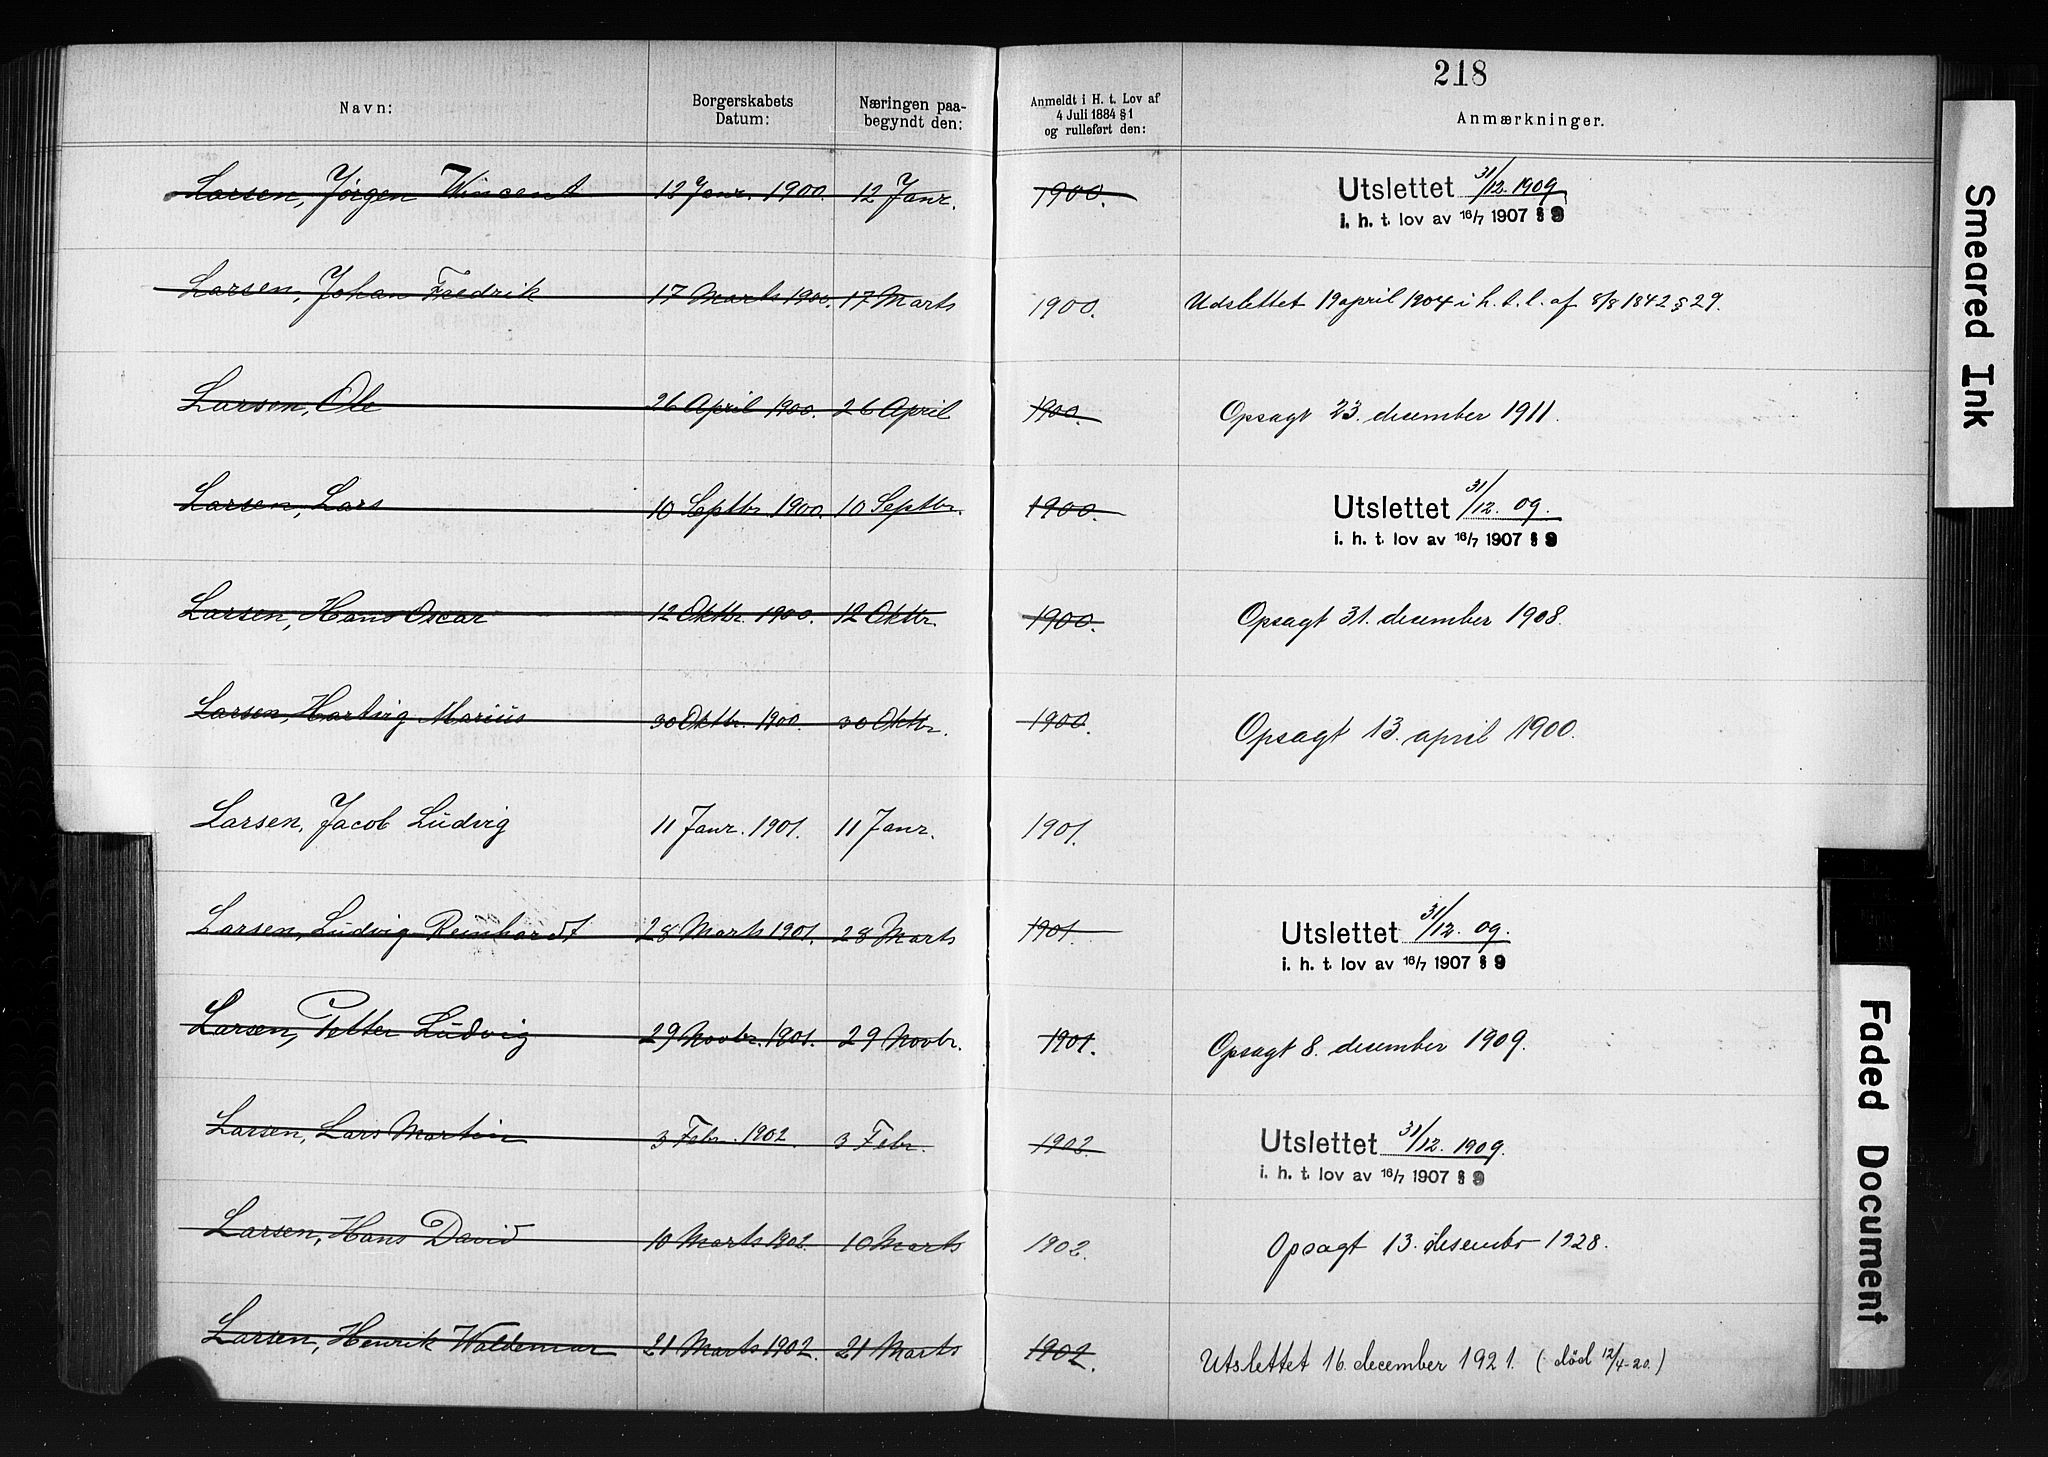 218
Navn: Borgerskabets Datum: Næringen paabegyndt den: Anmeldt i H. t. Lov af 4 Juli 1884 § 1 og rulleført den: Anmærkninger.
Larsen, Jørgen Wincent 12 Janr. 1900. 12 Janr. 1900. Utslettet 31/12. 1909
i. h. t. lov av 16/7 1907 § 9
Larsen, Johan Fredrik 17 Marts 1900. 17 Marts 1900. Udslettet 19 april 1904 i h. t. l. af 8/8 1842 § 29.
Larsen, Ole 26 April 1900. 26 April 1900. Opsagt 23. december 1911.
Larsen, Lars 10 Septbr. 1900. 10 Septbr. 1900. Utslettet 31/12. 09.
i. h. t. lov av 16/7 1907 § 9
Larsen, Hans Oscar 12 Oktbr. 1900. 12 Oktbr. 1900. Opsagt 31. december 1908.
Larsen, Hartvig Marius 30 Oktbr. 1900. 30 Oktbr. 1900. Opsagt 13. april 1900.
Larsen, Jacob Ludvig 11 Janr. 1901. 11 Janr. 1901.
Larsen, Ludvig Reinhardt 28 Marts 1901. 28 Marts 1901. Utslettet 31/12. 09.
i. h. t. lov av 16/7 1907 § 9
Larsen, Petter Ludvig 29 Novbr. 1901. 29 Novbr. 1901. Opsagt 8. december 1909.
Larsen, Lars Martin 3 Febr. 1902. 3 Febr. 1902. Utslettet 31/12. 1909.
i. h. t. lov av 16/7 1907 § 9
Larsen, Hans David 10 Marts 1902. 10 Marts 1902. Opsagt 13. desembr 1928.
Larsen, Henrik Waldemar 21 Marts 1902. 21 Marts 1902. Utslettet 16. december 1921. (død 12/4-20.)
Smeared Ink
Faded Document